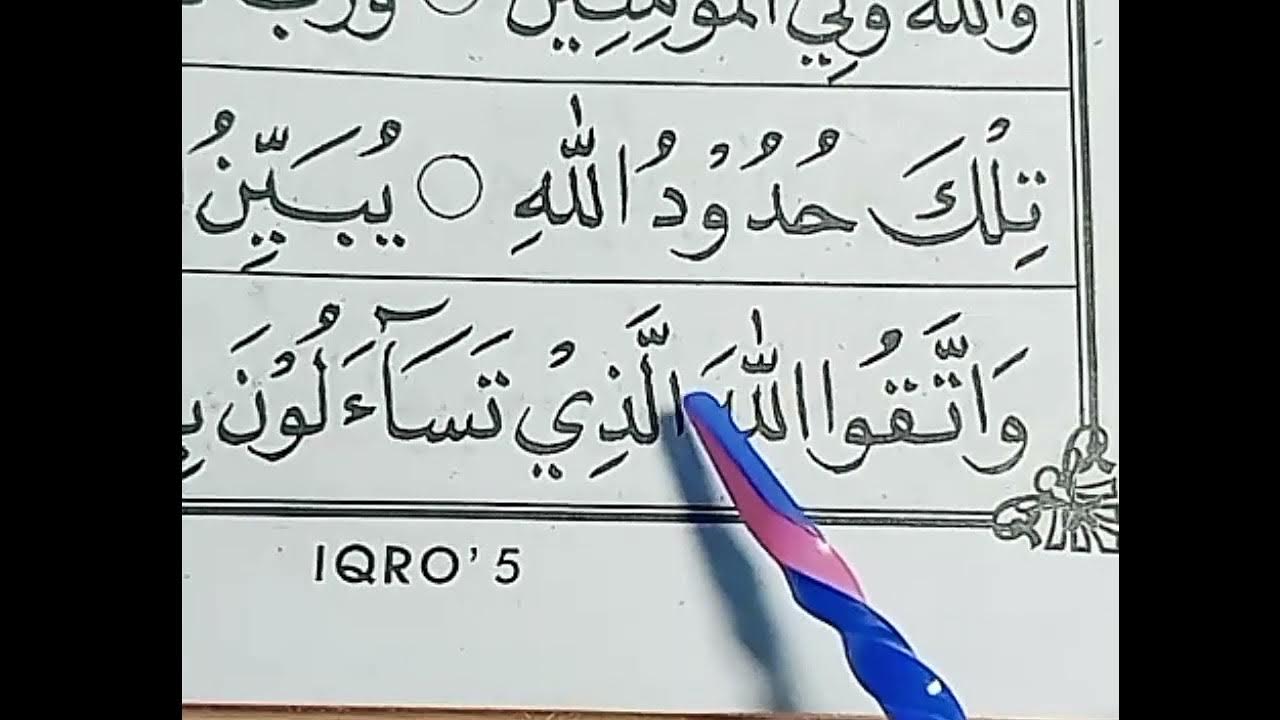 وَاللّٰهُ وَلِيُّ الْمُؤْمِنِيْنَ ○
تِلْكَ حُدُوْدُ اللّٰهِ ○ يُبَيِّنُ
وَاتَّقُوا اللّٰهَ الَّذِيْ تَسَآءَلُوْنَ
IQRO' 5